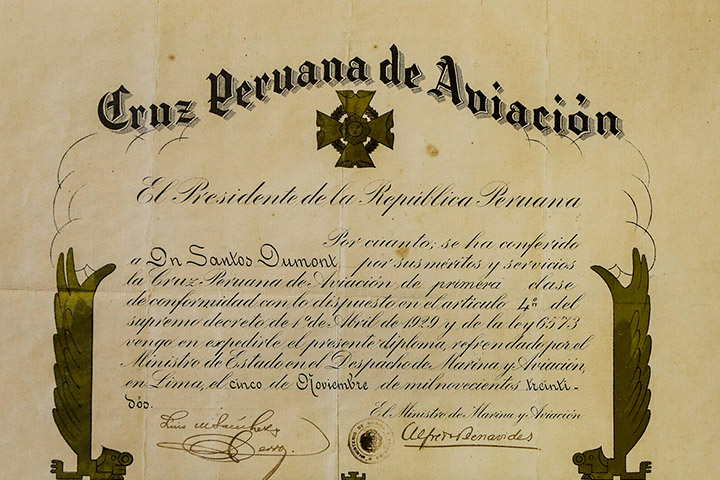 Cruz Peruana de Aviación
El Presidente de la República Peruana
Por cuanto; se ha conferido
a Dn Santos Dumont por sus méritos y servicios
la Cruz-Peruana de Aviación de primera clase
de conformidad con lo dispuesto en el artículo 4º del
supremo decreto de 1º de Abril de 1929 y de la ley 6573
vengo en expedirle el presente diploma, refrendado por el
Ministro de Estado en el Despacho de Marina y Aviación,
en Lima, el cinco de Noviembre de mil novecientos treinti-
dós.
El Ministro de Marina y Aviación
Luis M Sánchez
Cerro
Alfredo Benavides